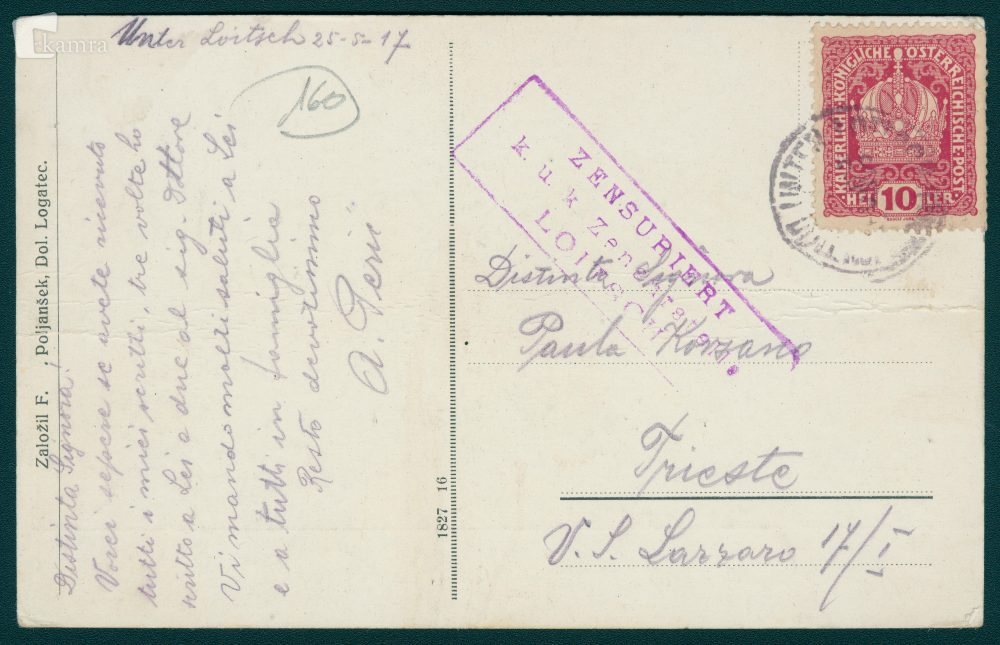 kamra
Unter Loitsch 25-5-17
160
Založil F. Poljanšek, Dol. Logatec.
Distinta Signora.
Vorei sapere se avete ricevuto
tutti i miei scritti, tre volte ho
scritto a Lei a due al sig. Dottore
Vi mando molti saluti a Lei
e a tutti in famiglia
Resto devotissimo
A. Perič
1827 16
KAISERLICHE KÖNIGLICHE ÖSTERREICHISCHE POST
HELLER
10
ZENSURIERT
k. u. k. Zensur
LOITSCH
Distinta Signora
Paula Korzano
Trieste
V. S. Lazzaro 17/I